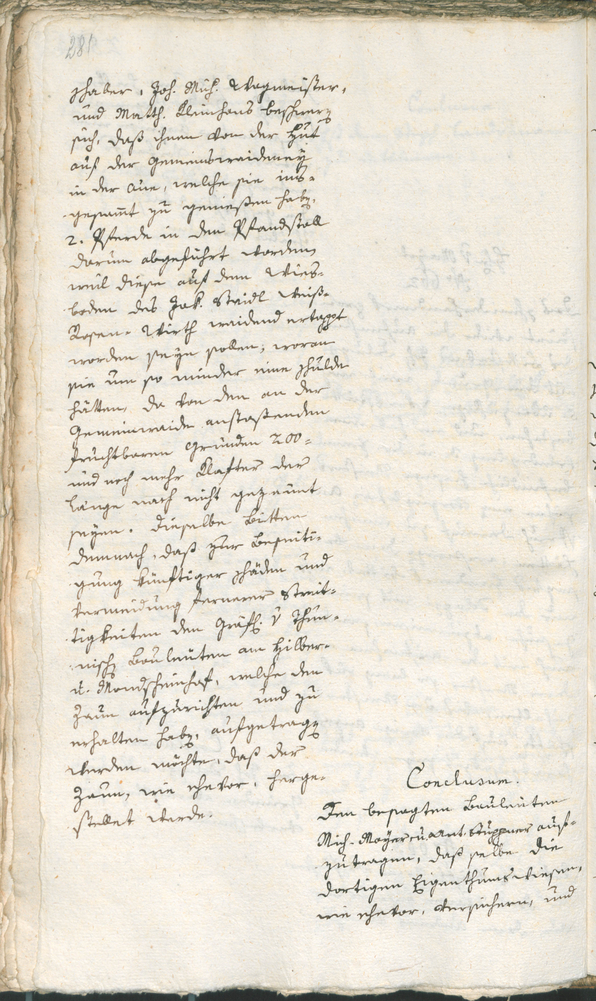 281
schaber, Joh. Mich. Wagmeister,
und Math. Kleinhans beschwern
sich, daß ihnen von der Hut
auf der Gemeinswaideney
in der Aue, welche sie ins-
gesammt zu genießen habn,
2. Pferde in den Pfandstall
darum abgeführt worden,
weil diese auf dem Wies-
boden des Jak. Steidl weiß-
Rosen-Wirth waidend ertappt
worden seyn sollen; woran
sie um so minder eine schulde
hätten, da von den an der
Gemeinwaide anstoßenden
fruchtbaren Gründen 200-
und noch mehr Klafter der
Länge nach nicht gezäunt
seyen. Dieselbe bitten
demnach, daß zur Beseiti-
gung künftiger schäden und
Vermeidung fernerer Streit-
tigkeiten den Gräfl. v Thun-
nisch Bauleuten am Hilber-
u. Mondscheinhof, welche den
Zaun aufzurichten und zu
erhalten habn, aufgetragn
werden möchte, daß der
Zaun, wie ehevor, herge-
stellet werde.
Conclusum:
Den besagten Bauleuten
Mich. Mayer u. Ant. Stuppner auf-
zutragen, daß selbe die
dortigen Eigenthumswiesen,
wie ehevor, versichern, und